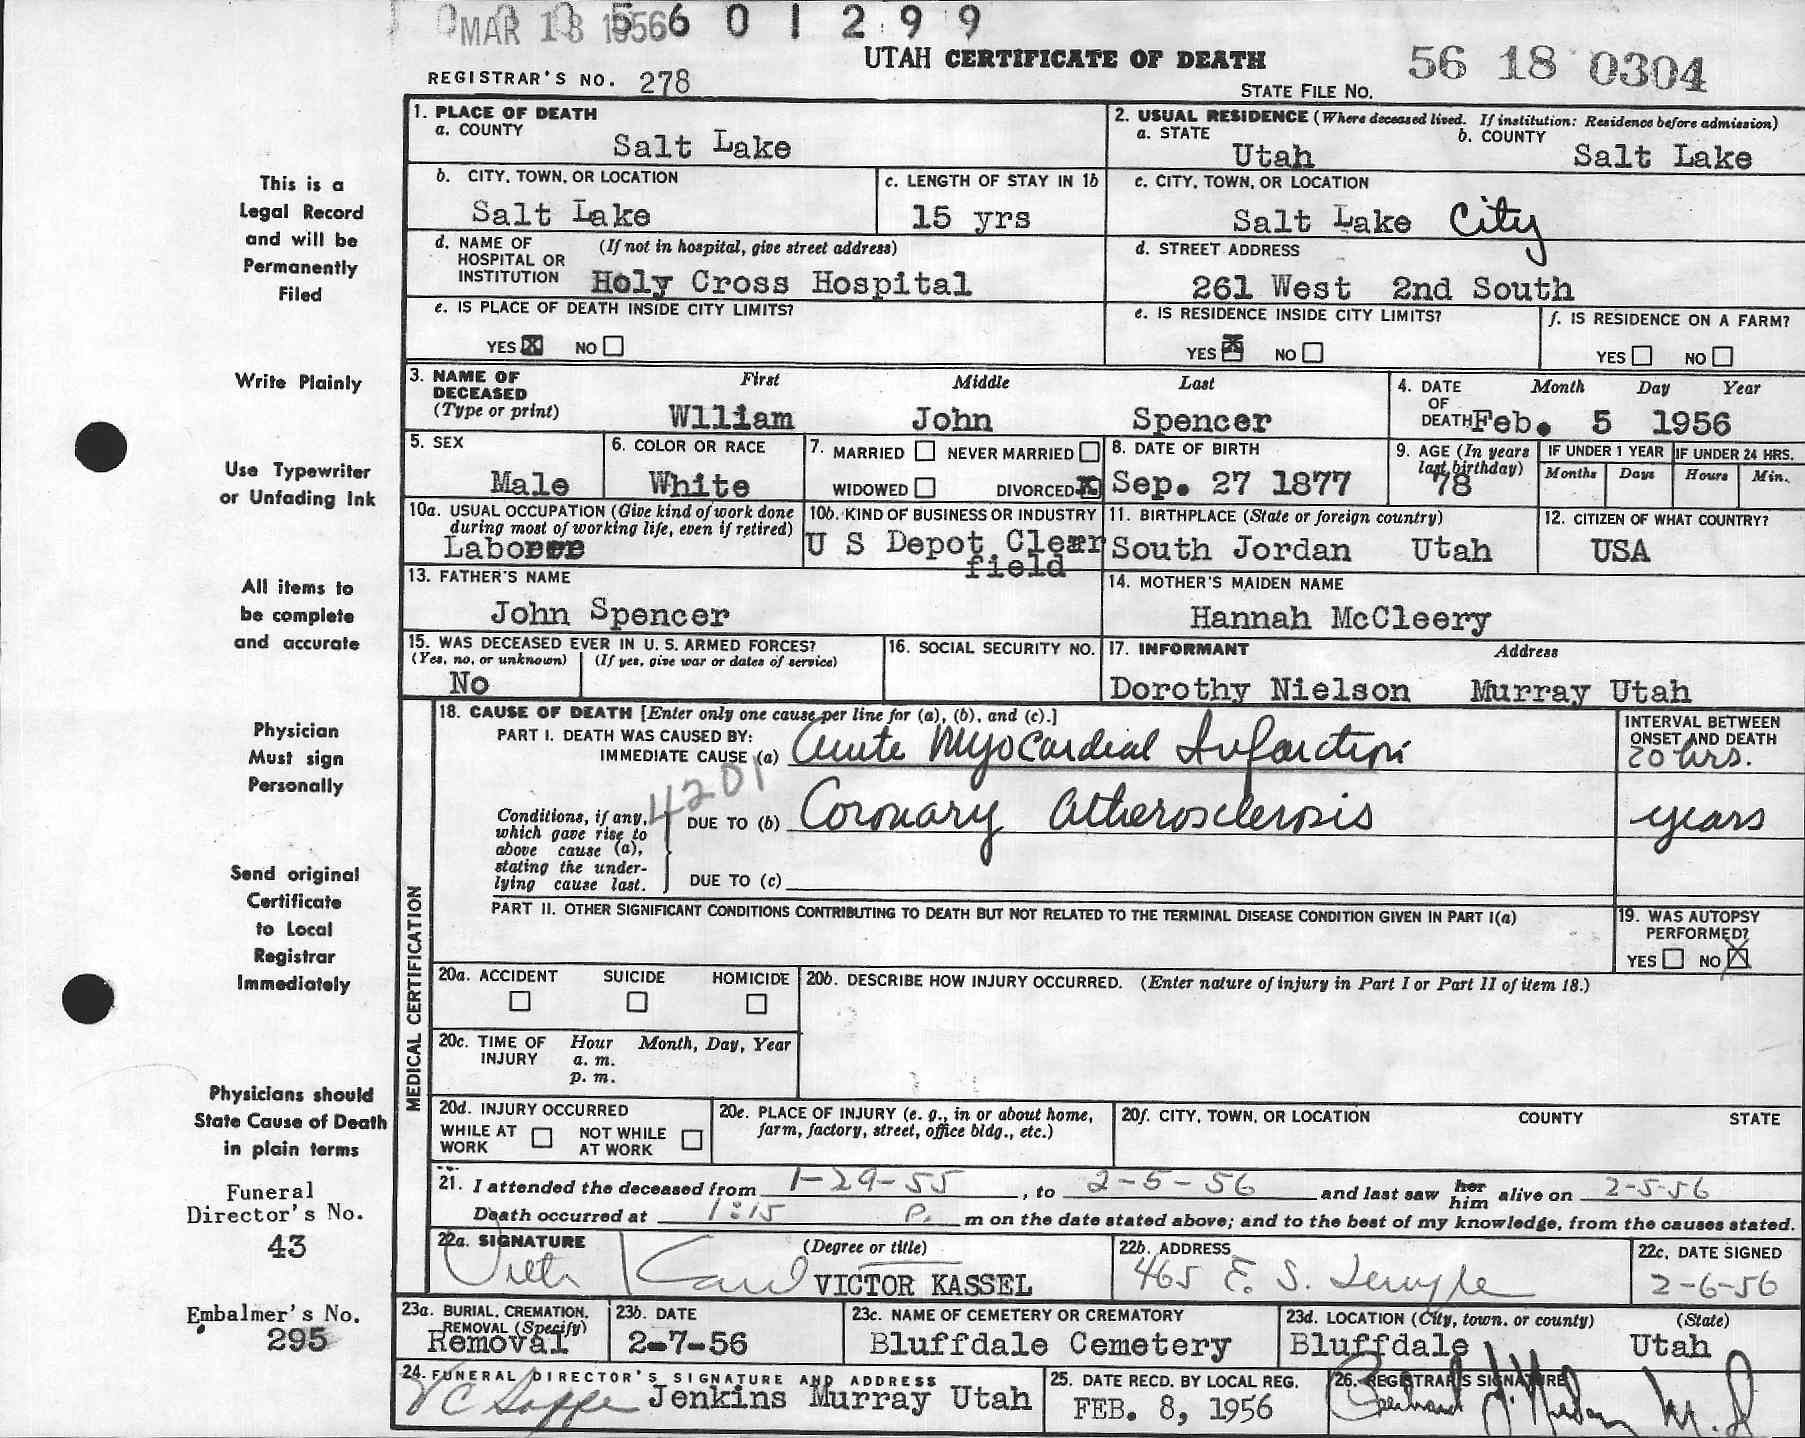 MAR 13 1956
5601299
UTAH CERTIFICATE OF DEATH
REGISTRAR'S NO. 278
STATE FILE NO. 56 18 0304
This is a
Legal Record
and will be
Permanently
Filed
Write Plainly
Use Typewriter
or Unfading Ink
All items to
be complete
and accurate
Physician
Must sign
Personally
Send original
Certificate
to Local
Registrar
Immediately
Physicians should
State Cause of Death
in plain terms
Funeral
Director's No.
43
Embalmer's No.
295
1. PLACE OF DEATH
a. COUNTY
Salt Lake
2. USUAL RESIDENCE (Where deceased lived. If institution: Residence before admission)
a. STATE b. COUNTY
Utah Salt Lake
b. CITY, TOWN, OR LOCATION
Salt Lake
c. LENGTH OF STAY IN 1b
15 yrs
c. CITY, TOWN, OR LOCATION
Salt Lake City
d. NAME OF (If not in hospital, give street address)
HOSPITAL OR
INSTITUTION Holy Cross Hospital
d. STREET ADDRESS
261 West 2nd South
e. IS PLACE OF DEATH INSIDE CITY LIMITS?
YES X NO
e. IS RESIDENCE INSIDE CITY LIMITS?
YES X NO
f. IS RESIDENCE ON A FARM?
YES NO
3. NAME OF First Middle Last
DECEASED
(Type or print) Wlliam John Spencer
4. DATE Month Day Year
OF
DEATH Feb. 5 1956
5. SEX
Male
6. COLOR OR RACE
White
7. MARRIED NEVER MARRIED
WIDOWED DIVORCED X
8. DATE OF BIRTH
Sep. 27 1877
9. AGE (In years
last birthday)
78
IF UNDER 1 YEAR
Months Days
IF UNDER 24 HRS.
Hours Min.
10a. USUAL OCCUPATION (Give kind of work done
during most of working life, even if retired)
Laborer
10b. KIND OF BUSINESS OR INDUSTRY
U S Depot Clear
field
11. BIRTHPLACE (State or foreign country)
South Jordan Utah
12. CITIZEN OF WHAT COUNTRY?
USA
13. FATHER'S NAME
John Spencer
14. MOTHER'S MAIDEN NAME
Hannah McCleery
15. WAS DECEASED EVER IN U. S. ARMED FORCES?
(Yes, no, or unknown) (If yes, give war or dates of service)
No
16. SOCIAL SECURITY NO.
17. INFORMANT Address
Dorothy Nielson Murray Utah
MEDICAL CERTIFICATION
18. CAUSE OF DEATH [Enter only one cause per line for (a), (b), and (c).]
PART I. DEATH WAS CAUSED BY:
IMMEDIATE CAUSE (a) Acute Myocardial Infarction
INTERVAL BETWEEN
ONSET AND DEATH
20 hrs.
4201
Conditions, if any,
which gave rise to
above cause (a),
stating the under-
lying cause last.
DUE TO (b) Coronary Atherosclerosis
years
DUE TO (c)
PART II. OTHER SIGNIFICANT CONDITIONS CONTRIBUTING TO DEATH BUT NOT RELATED TO THE TERMINAL DISEASE CONDITION GIVEN IN PART I(a)
19. WAS AUTOPSY
PERFORMED?
YES NO X
20a. ACCIDENT SUICIDE HOMICIDE
20b. DESCRIBE HOW INJURY OCCURRED. (Enter nature of injury in Part I or Part II of item 18.)
20c. TIME OF Hour Month, Day, Year
INJURY a. m.
p. m.
20d. INJURY OCCURRED
WHILE AT NOT WHILE
WORK AT WORK
20e. PLACE OF INJURY (e. g., in or about home,
farm, factory, street, office bldg., etc.)
20f. CITY, TOWN, OR LOCATION COUNTY STATE
21. I attended the deceased from 1-29-55, to 2-5-56 and last saw her him alive on 2-5-56
Death occurred at 1:15 P. m on the date stated above; and to the best of my knowledge, from the causes stated.
22a. SIGNATURE (Degree or title)
VICTOR KASSEL
22b. ADDRESS
465 E. S. Temple
22c. DATE SIGNED
2-6-56
23a. BURIAL, CREMATION,
REMOVAL (Specify)
Removal
23b. DATE
2-7-56
23c. NAME OF CEMETERY OR CREMATORY
Bluffdale Cemetery
23d. LOCATION (City, town, or county) (State)
Bluffdale Utah
24. FUNERAL DIRECTOR'S SIGNATURE AND ADDRESS
Jenkins Murray Utah
25. DATE RECD. BY LOCAL REG.
FEB. 8, 1956
26. REGISTRAR'S SIGNATURE